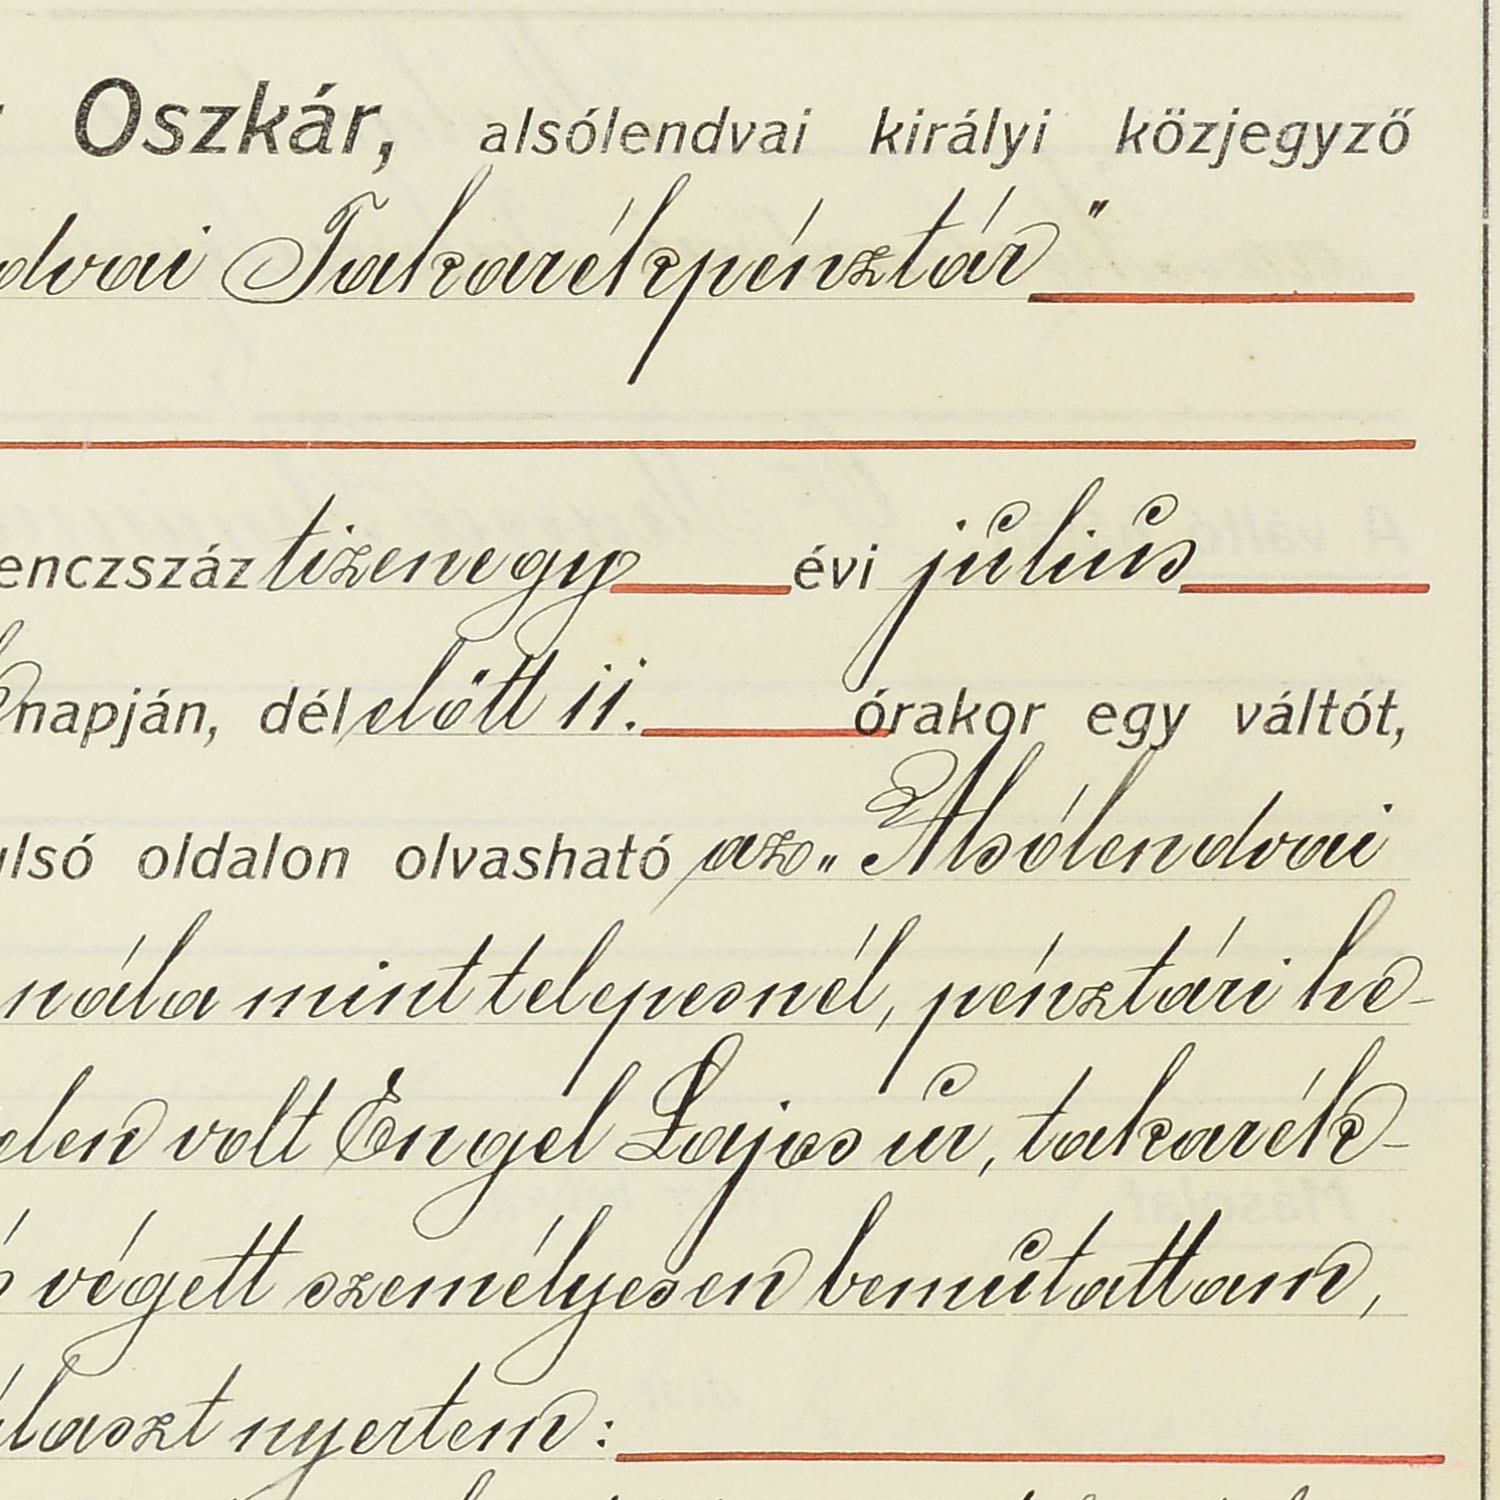 Oszkár, alsólendvai királyi közjegyző
dvai Takarékpénztár"
enczszáz tizenegy évi július
napján, délelőtt ii. órakor egy váltót,
ulsó oldalon olvasható az „Alsólendvai
nála mint telepesnél, pénztári he-
elen volt Engel Lajos úr, takarék-
végett személyesen bemutattam,
álaszt nyertem: